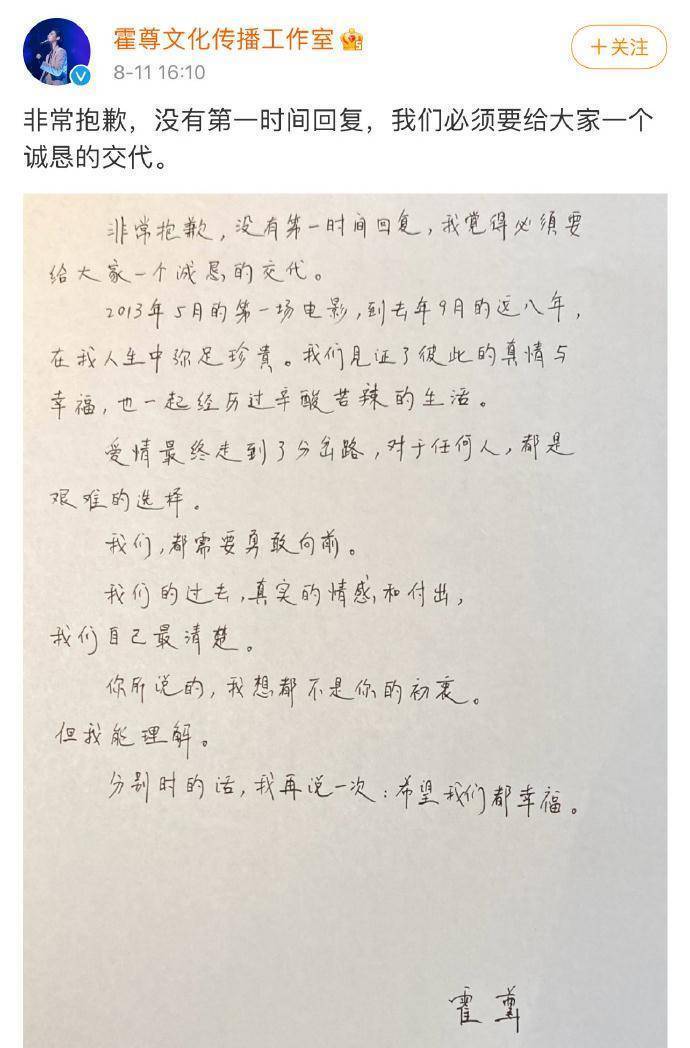 霍尊文化传播工作室
8-11 16:10
+关注
非常抱歉，没有第一时间回复，我们必须要给大家一个
诚恳的交代。
非常抱歉，没有第一时间回复，我觉得必须要
给大家一个诚恳的交代。
2013年5月的第一场电影，到去年9月的近八年，
在我人生中弥足珍贵。我们见证了彼此的真情与
幸福，也一起经历过辛酸苦辣的生活。
爱情最终走到了分岔路，对于任何人，都是
艰难的选择。
我们，都需要勇敢向前。
我们的过去，真实的情感和付出，
我们自己最清楚。
你所说的，我想都不是你的初衷。
但我能理解。
分别时的话，我再说一次：希望我们都幸福。
霍尊